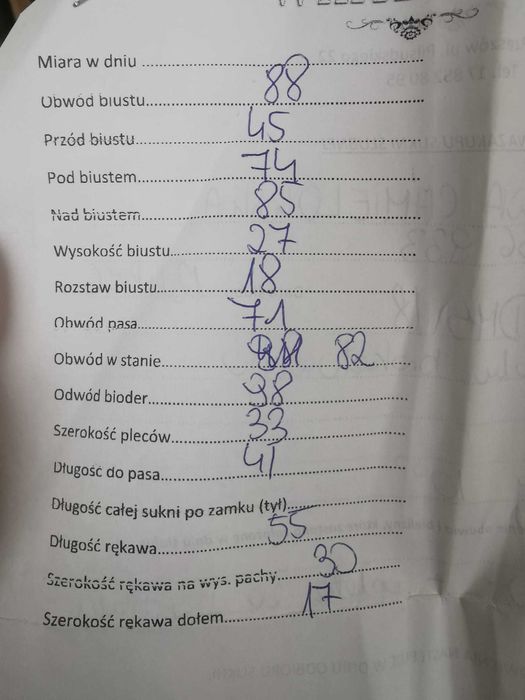 Miara w dniu
Obwód biustu 88
Przód biustu 45
Pod biustem 74
Nad biustem 85
Wysokość biustu 27
Rozstaw biustu 18
Obwód pasa 71
Obwód w stanie 82
Odwód bioder 98
Szerokość pleców 33
Długość do pasa 41
Długość całej sukni po zamku (tył)
Długość rękawa 55
Szerokość rękawa na wys. pachy 30
Szerokość rękawa dołem 17